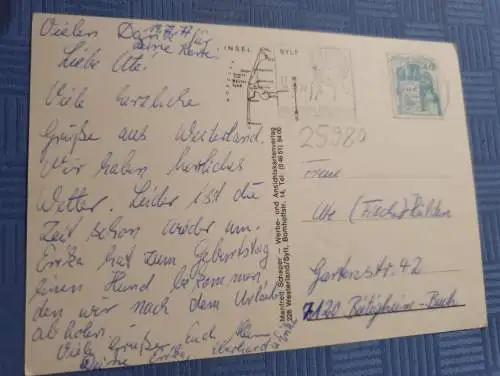 Vielen Dank für
Deine Karte
Liebe Ute!
Viele herzliche
Grüße aus Westerland.
Wir haben herrliches
Wetter. Leider ist die
Zeit schon wieder um.
Erika hat zum Geburtstag
einen Hund bekommen,
den wir nach dem Urlaub
abholen.
Viele Grüße Euch
Deine Erika, Eberhard
INSEL SYLT
Manfred Schaper – Werbe- und Ansichtskartenverlag
228 Westerland/Sylt, Bomhoffstr. 14, Tel. (0 46 51) 64 00
40
25980
Ute
Gartenstr. 42
7120 Bietigheim-Buch